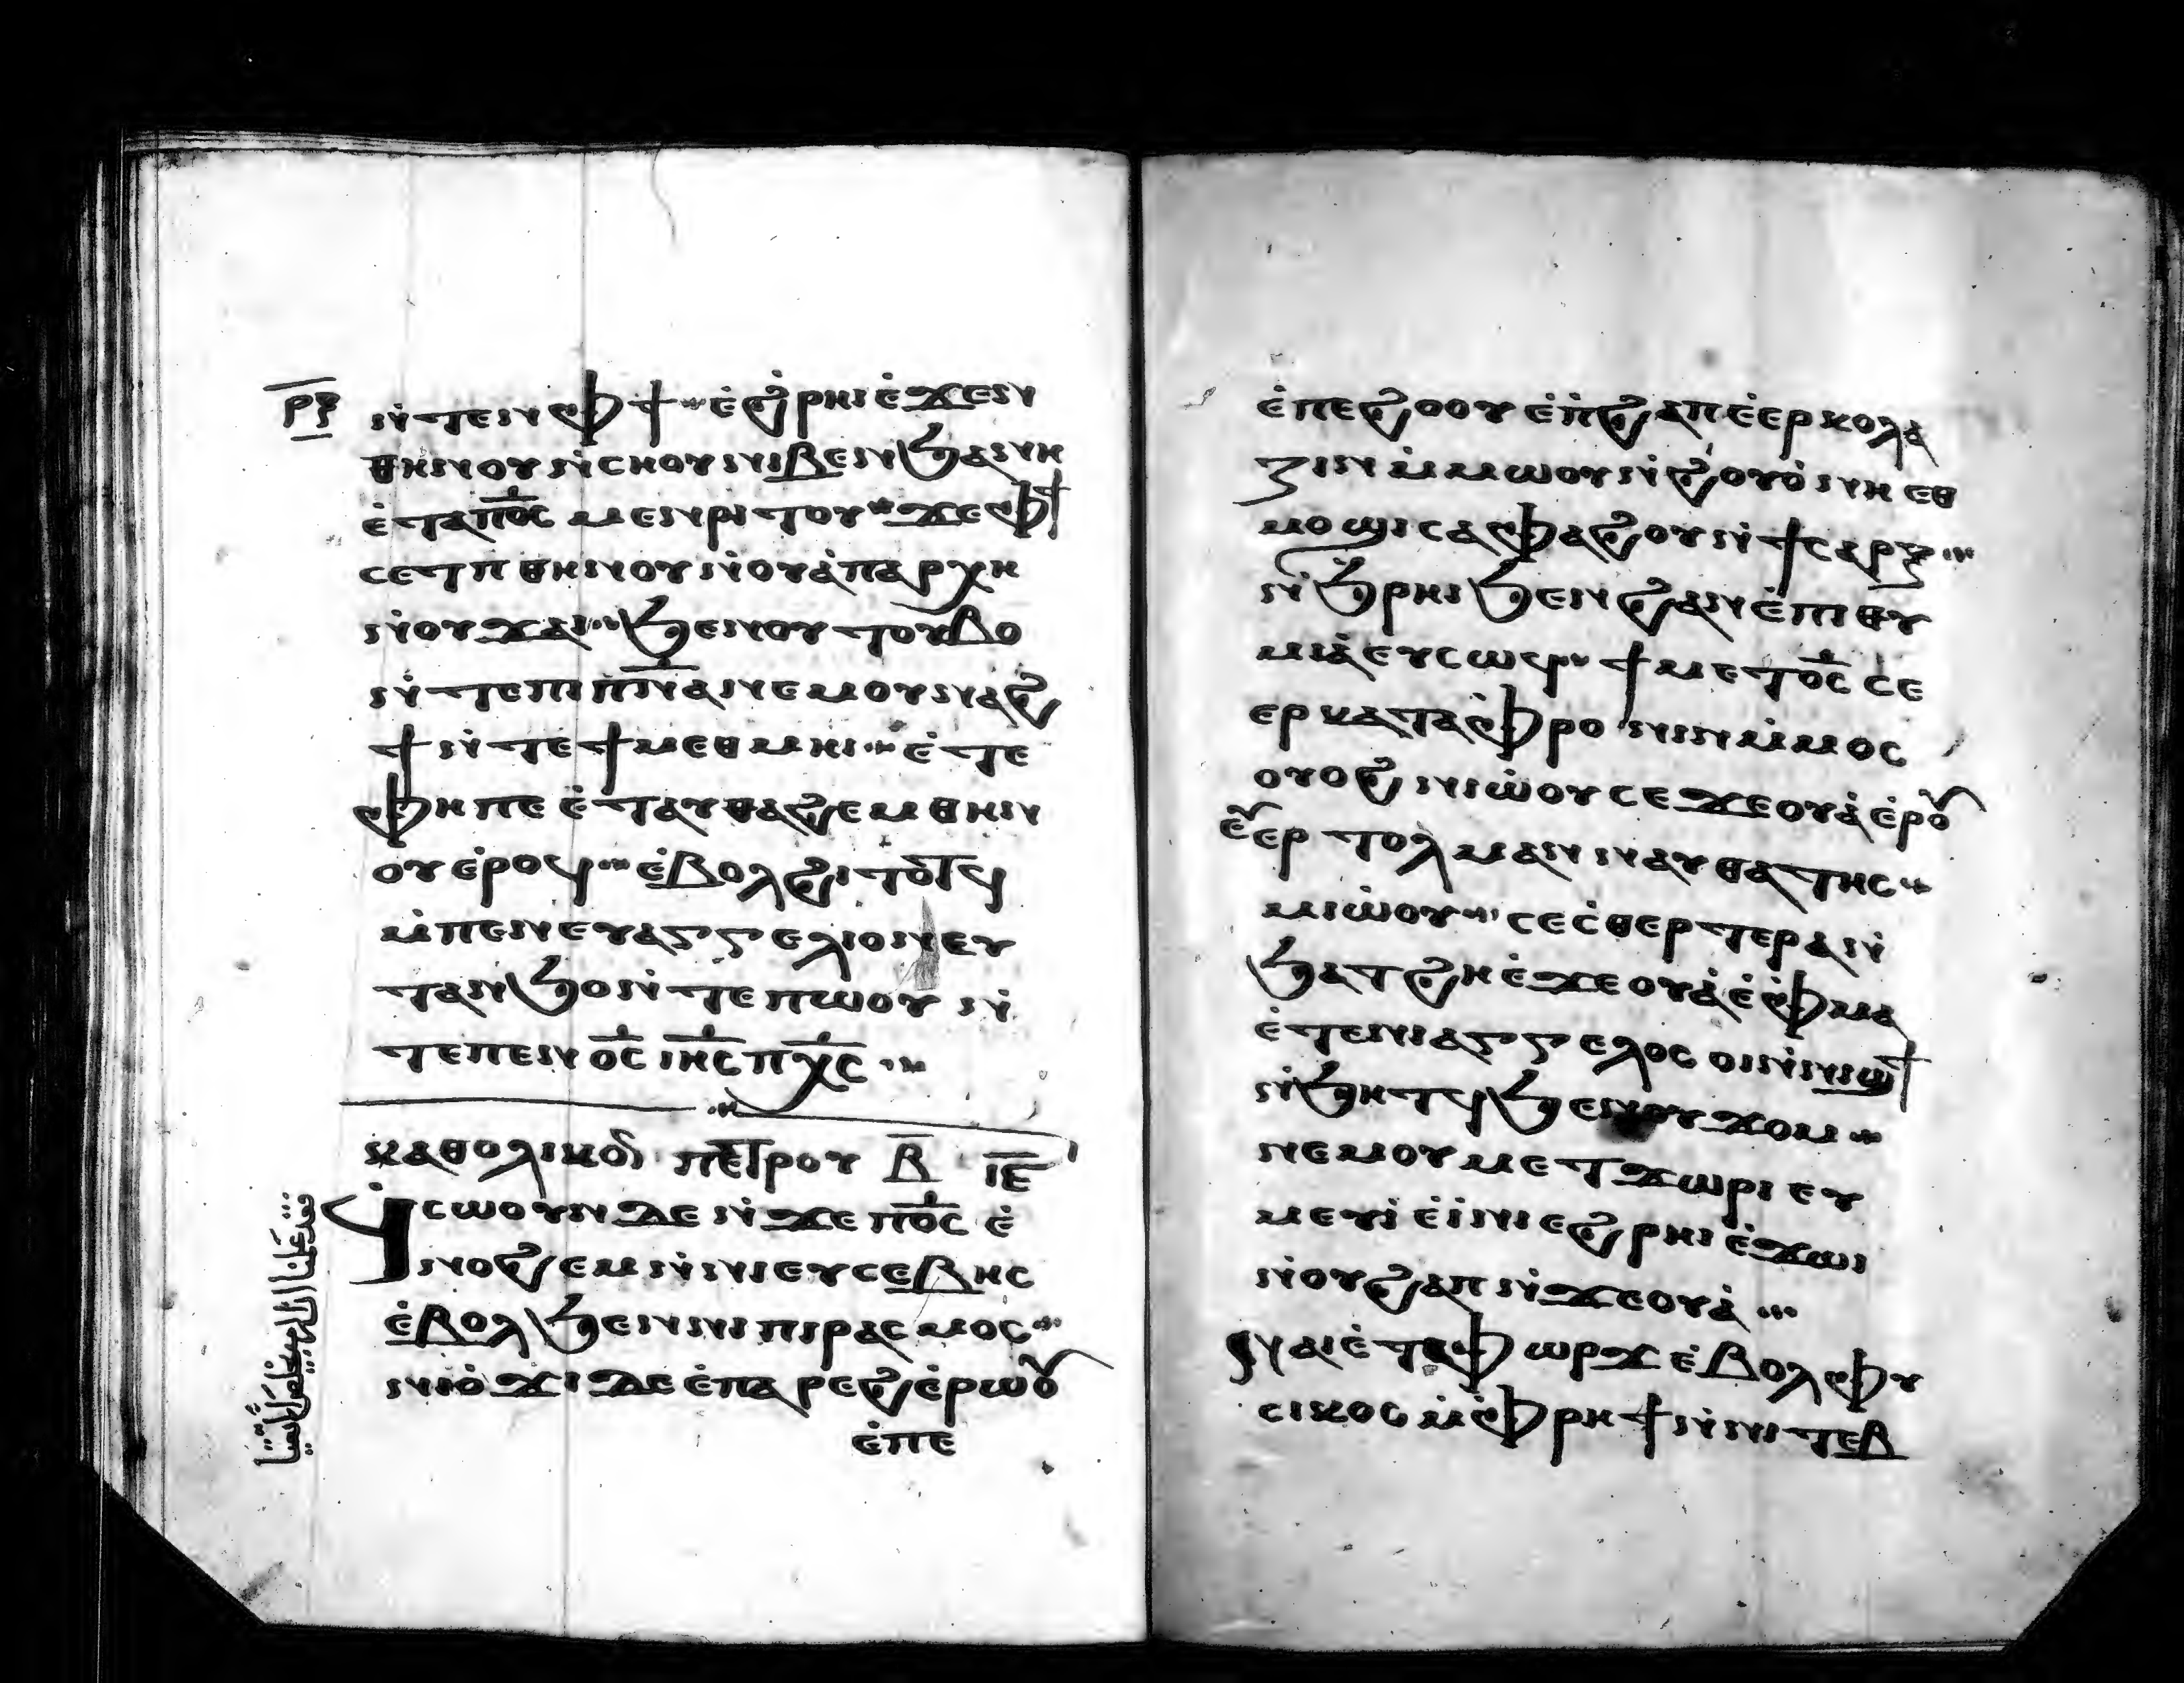 ⲣⲝ
ⲛ̀ⲧⲉⲛⲫϯ ⲉ̀ϩ̀ⲣⲏⲓ ⲉ̀ϫⲉⲛ
ⲑⲏⲛⲟⲩ ⲛ̀ⲥⲏⲟⲩ ⲛⲓⲃⲉⲛ ϧⲁ ⲛⲏ
ⲉ̀ⲧⲁⲡⲟ̅ⲥ̅ ⲙⲉⲛⲣⲓⲧⲟⲩ ϫⲉ ⲫϯ
ⲥⲉⲧⲡ ⲑⲏⲛⲟⲩ ⲛ̀ⲟⲩⲁ̀ⲡⲁⲣⲭⲏ
ⲛ̀ⲟⲩϫⲁⲓ ϧⲉⲛ ⲟⲩⲧⲟⲩⲃⲟ
ⲛ̀ⲧⲉ ⲡⲓⲡ̅ⲛ̅ⲁ̅ ⲛⲉⲙ ⲟⲩⲛⲁϩ
ϯ ⲛ̀ⲧⲉ ϯⲙⲉⲑⲙⲏⲓ ⲉ̀ⲧⲉ
ⲫⲏ ⲡⲉ ⲉ̀ⲧⲁⲩⲑⲁϩⲉⲙ ⲑⲏⲛ
ⲟⲩ ⲉ̀ⲣⲟϥ ⲉ̀ⲃⲟⲗϩⲓⲧⲟⲧϥ
ⲙ̀ⲡⲉⲛⲉⲩⲁⲅⲅⲉⲗⲓⲟⲛ ⲉⲩ
ⲧⲁⲛϧⲟ ⲛ̀ⲧⲉ ⲡⲱⲟⲩ ⲛ̀
ⲧⲉ ⲡⲉⲛⲟ̅ⲥ̅ ⲓⲏ̅ⲥ̅ ⲡⲭ̅ⲥ̅
ⲕⲁⲑⲟⲗⲓⲕⲟⲛ ⲡⲉⲧⲣⲟⲩ ⲃ̅ ⲓ̅ⲉ̅
ϥⲥⲱⲟⲩⲛ ⲇⲉ ⲛ̀ϫⲉ ⲡⲟ̅ⲥ̅ ⲉ̀
ⲛⲟϩⲉⲙ ⲛ̀ⲛⲓⲉⲩⲥⲉⲃⲏⲥ
ⲉ̀ⲃⲟⲗ ϧⲉⲛ ⲛⲓⲡⲓⲣⲁⲥⲙⲟⲥ
ⲛⲓⲟ̀ϫⲓ ⲇⲉ ⲉ̀ⲡⲁⲣⲉϩ ⲉ̀ⲣⲱⲟⲩ
ⲉ̀ⲡⲉ
ⲉ̀ⲡⲉϩⲟⲟⲩ ⲉ̀ⲡ̀ϩⲁⲡ ⲉ̀ⲉⲣⲕⲟⲗⲁ
ⲍⲓⲛ ⲙ̀ⲙⲱⲟⲩ ⲛ̀ϩⲟⲩⲟ̀ ⲛⲏ ⲉⲑ
ⲙⲟϣⲓ ⲥⲁⲫⲁϩⲟⲩ ⲛ̀ϯⲥⲁⲣⲝ
ⲛ̀ϧⲣⲏⲓ ϧⲉⲛ ϩⲁⲛⲉ̀ⲡⲓⲑⲩ
ⲙⲓⲁ̀ ⲉⲩⲥⲱϥ ϯⲙⲉⲧⲟ̅ⲥ̅ ⲥⲉ
ⲉⲣⲕⲁⲧⲁⲫⲣⲟⲛⲓⲛ ⲙ̀ⲙⲟⲥ
ⲟⲩⲟϩ ⲛⲓⲱ̀ⲟⲩ ⲥⲉϫⲉⲟⲩⲁ̀ ⲉ̀ⲣⲟⲩ
ⲉⲩⲉⲣⲧⲟⲗⲙⲁⲛ ⲛⲁⲩⲑⲁⲧⲏⲥ
ⲙⲓⲱ̀ⲟⲩ ⲥⲉⲥ̀ⲑⲉⲣⲧⲉⲣ ⲁⲛ
ϧⲁⲧϩⲏ ⲉ̀ϫⲉⲟⲩⲁ̀ ⲉ̀ⲫ̀ⲙⲁ
ⲉ̀ⲧⲉ ⲛⲓⲁⲅⲅⲉⲗⲟⲥ ⲟⲓ ⲛ̀ⲛⲓϣϯ
ⲛ̀ϧⲏⲧϥ ϧⲉⲛ ⲟⲩϫⲟⲙ
ⲛⲉⲙ ⲟⲩⲙⲉⲧϫⲱⲣⲓ ⲉⲩ
ⲙⲉⲩⲓ̀ ⲉ̀ⲓ̀ⲛⲓ ⲉϩⲣⲏⲓ ⲉ̀ϫⲱⲓ
ⲛ̀ⲟⲩϩⲁⲡ ⲛ̀ϫⲉⲟⲩⲁ̀
ⲛⲁⲓ ⲉ̀ⲧⲁⲫⲱⲣϫ ⲉ̀ⲃⲟⲗ ⲫⲩ
ⲥⲓⲕⲟⲥ ⲙ̀ⲫ̀ⲣⲏϯ ⲛ̀ⲛⲓⲧⲉⲃ